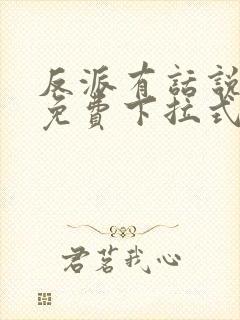 反派有話說
免費下拉式
君茗我心